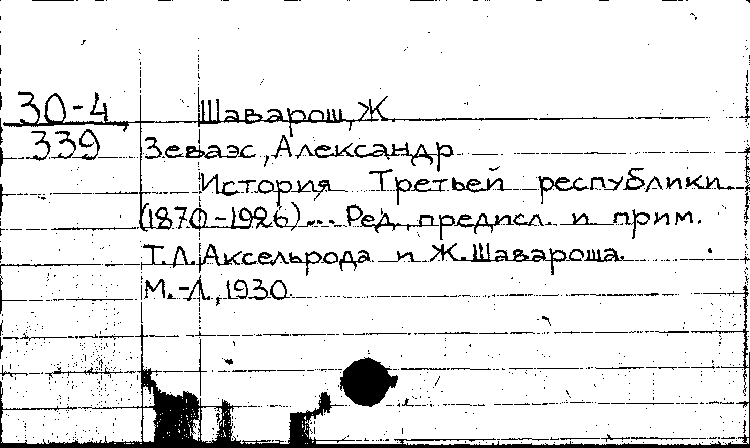 30-4 Шаварош, Ж.
339 Зеваэс, Александр
История Третьей республики
(1870-1926)... Ред., предисл. и прим.
Т.Л. Аксельрода и Ж. Шавароша.
М.-Л., 1930.